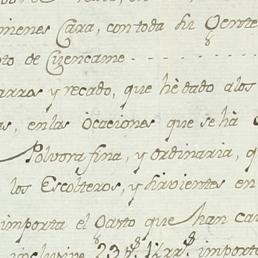 imenes Cara, con toda su Gente
to de Cuencame
arros y recado, que hè dado alos
as, enlas Ocaciones que se ha
Polvora fina, y ordinaria, q
los Escolteros, y sirvientes en
importa el Gasto que han ca
inclusive
importo